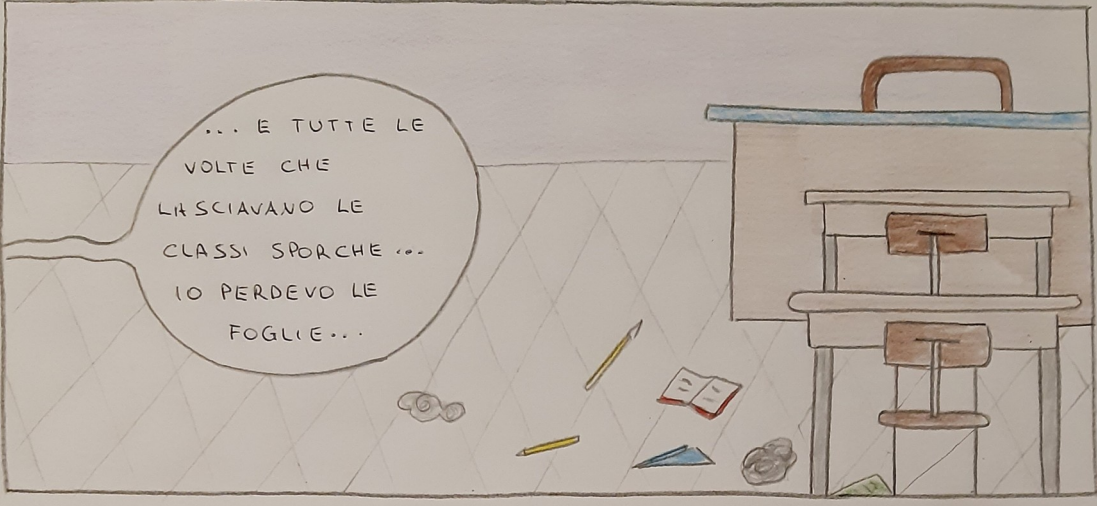 ... E TUTTE LE
VOLTE CHE
LASCIAVANO LE
CLASSI SPORCHE ...
IO PERDEVO LE
FOGLIE...